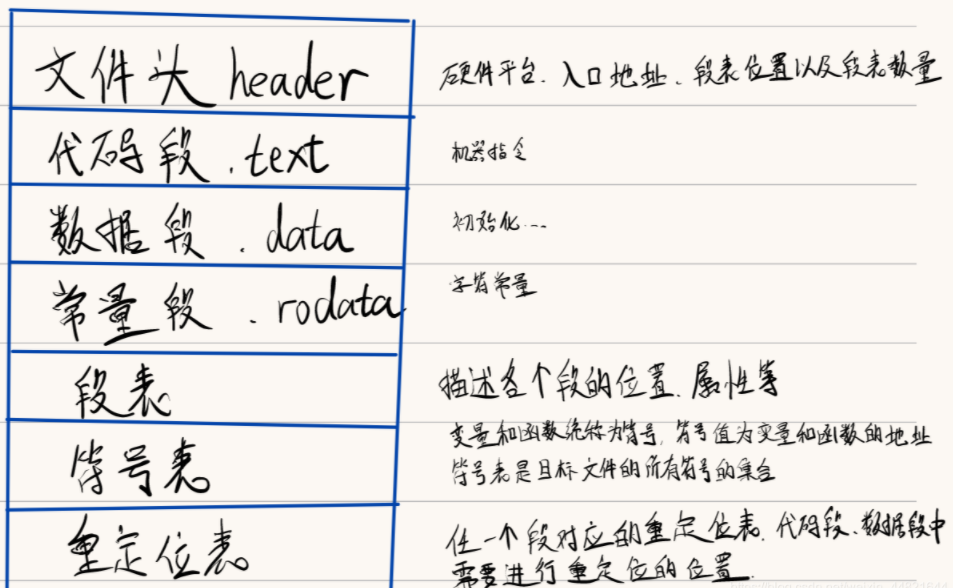 文件头 header
硬件平台、入口地址、段表位置以及段表数量
代码段 .text
机器指令
数据段 .data
初始化...
常量段 .rodata
字符常量
段表
描述各个段的位置、属性等
符号表
变量和函数统称为符号, 符号值为变量和函数的地址
符号表是目标文件的所有符号的集合
重定位表
任一个段对应的重定位表、代码段、数据段中
需要进行重定位的位置.